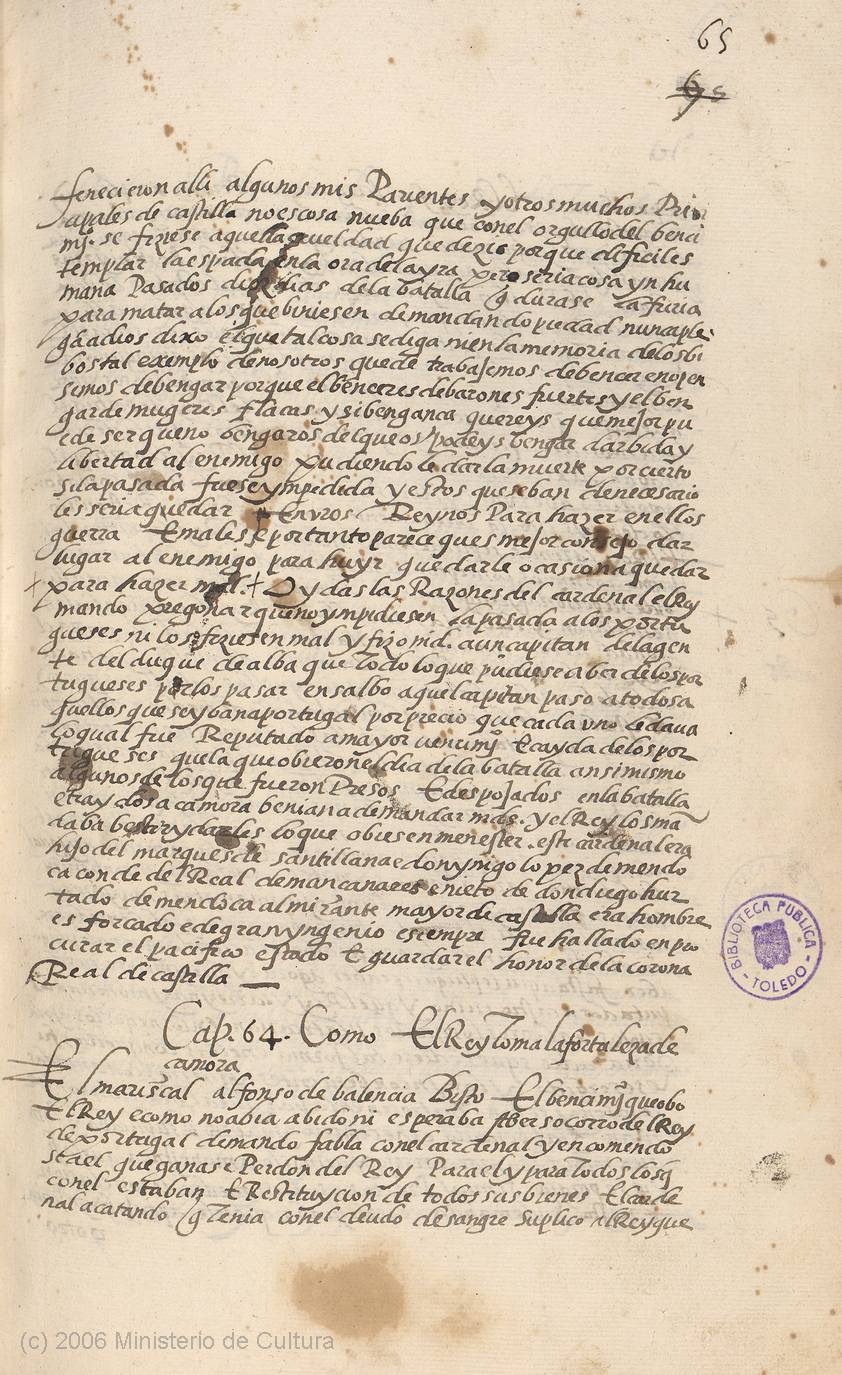 65
fenecieron alli algunos mis Parientes y otros muchos Prin
cipales de castilla no es cosa nueba que con el orgullo del benci
mj.º se fiziese aquella crueldad que dezis porque dificil es
templar la espada en la ora de la yra pero seria cosa ynhu
mana Pasados diez dias de la batalla q durase la furia
para matar a los que biniesen demandando piedad nunca ple
ga a dios dixo el que tal cosa se diga ni en la memoria de los bi
bos tal exemplo de nosotros quede trabajemos de bencer e no pen
semos de bengar porque el bencer es de barones fuertes y el ben
gar de mugeres flacas y si benganca quereys que mejor pu
ede ser que no bengaros del que os podeys bengar dar bida y
libertad al enemigo pudiendole dar la muerte por cierto
si la pasada fuese ympedida y estos que se ban de necesario
les seria quedar En vros Reynos Para hazer en ellos
guerra E males e por tanto parece q es mejor consejo dar
lugar al enemigo para huyr que darle ocasion a quedar
para hazer mal. + Oydas las Razones del cardenal el Rey
mando pregonar que no ympidiesen la pasada a los portu
gueses ni los fiziesen mal y fizo md. a un capitan de la gen
te del duque de alba que todo lo que pudiese aber de los por
tugueses por los pasar en salbo aquel capitan paso a todos a
quellos que se yban a portugal por precio que cada uno le daua
lo qual fue Reputado a mayor uencimj.º E cayda de los por
tugueses que la que obieron el dia de la batalla ansimismo
algunos de los que fueron Presos E despojados en la batalla
e traydos a camora benian a demandar mas. y el Rey los mã
daba bestir y darles lo que obiesen menester. este cardenal era
hijo del marques de santillana e don ynigo lopez de mendo
ca conde del Real de mancanares e nieto de don diego hur
tado de mendoca almirante mayor de castilla era hombre
esforcado e de gran yngenio e siempre fue hallado en pro
curar el pacifico estado E guardar el honor de la corona
Real de castilla
Cap. 64. Como El Rey toma la fortaleza de
camora
El mariscal alfonso de balencia Bisto El bencimj.º que obo
El Rey e como no abia abido ni esperaba aber socorro del Rey
de portugal demando fabla con el cardenal y encomendo
se a el que ganase Perdon del Rey Para el y para todos los q
con el estaban E Restituycion de todos sus bienes El carde
nal acatando q tenia con el deudo de sangre suplico al Rey que
BIBLIOTECA PUBLICA
- TOLEDO -
(c) 2006 Ministerio de Cultura